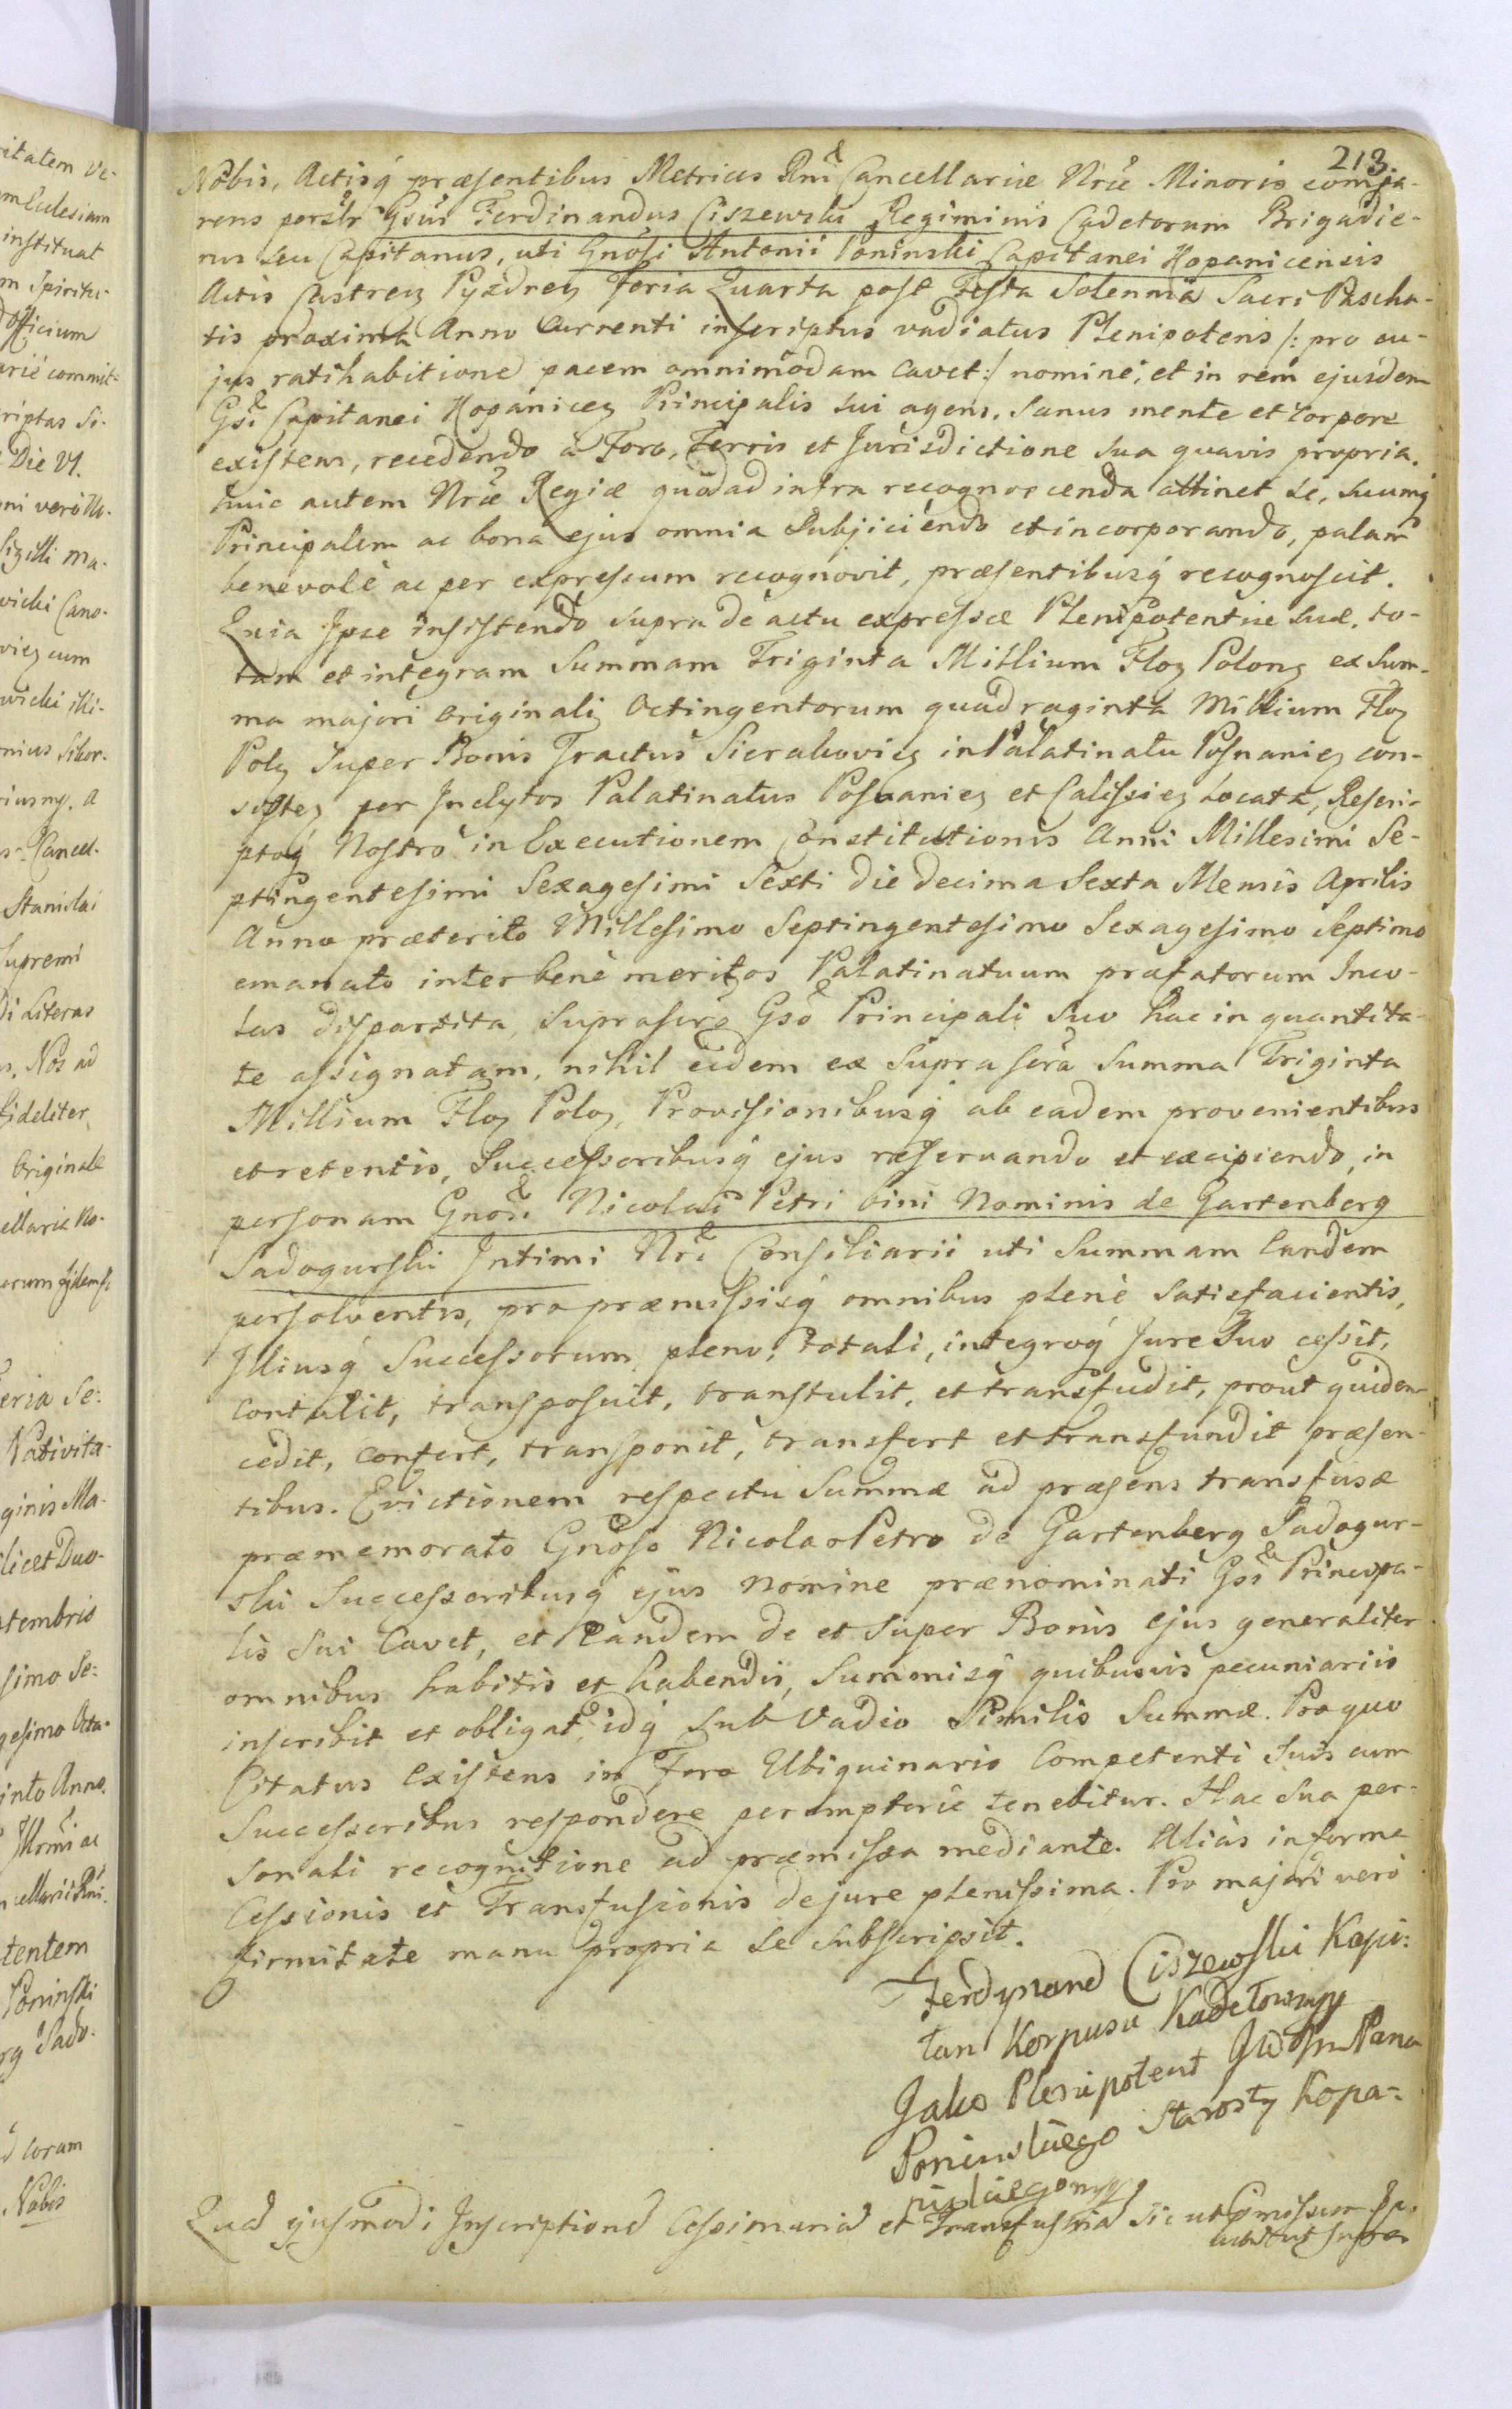 213.
Nobis, Actisq̃ præsentibus Metrices Rni Cancellariæ Nræ Minoris compa-
rens persłr Gsus Ferdinandus Ciszewski Regiminis Cadetorum Brigadie-
rus seu Capitanus, uti Gnosi Antonii Poninski Capitanei Kopanicensis
Actis Castren Pyzdren Feria Quarta post Festa Solenna Sacri Pascha-
tis proxima Anno Currenti inscriptus vadiatus Plenipotens /: pro cu-
jus ratihabitione pacem omnimodam cavet :/ nomine, et in rem ejusdem
Gsi Capitanei Kopanicen Principalis sui agens. Sanus mente et corpore
existens, recedendo a Foro, Terris et Jurisdictione sua quavis propria.
huic autem Nræ Regiæ quoad infra recognoscenda attinet se, suumq̃
Principalem ac bona ejus omnia Subjiciendo et incorporando, palam
benevolè ac per expressum recognovit, præsentibusq̃ recognoscit.
Quia Ipse insistendo supra de actu expressæ Plenipotentiæ suæ, to-
tam et integram Summam Triginta Millium Flor Polon ex Sum-
ma majori originali Octingentorum quadraginta Millium Flor
Pol Super Bonis Tractus Sierakovien in Palatinatu Posnanien con-
sisten per Inclytos Palatinatus Posnanien et Calissien Locata, Rescri-
ptoq̃ Nostro in Executionem Constitutionis Anni Millesimi Se-
ptingentesimi Sexagesimi Sexti die decima Sexta Mensis Aprilis
Anno præterito Millesimo Septingentesimo Sexagesimo Septimo
emanato inter bene meritos Palatinatuum præfatorum Inco-
las dispartita, Suprascro Gso Principali Suo hac in quantita-
te assignatam, nihil eidem ex Suprascra Summa Triginta
Millium Flor Polo, Provisionibusq̃ ab eadem provenientibus
et retentis, Successoribusq̃ ejus reservando et excipiendo, in
personam Gnosi Nicolai Petri bini Nominis de Gartenberg
Sadogurski Intimi Nri Consiliarii uti Summam Eandem
persolventis, pro præmissisq̃ omnibus plenè Satisfacientis,
Illiusq̃ Successorum pleno, totali, integroq̃ Jure Suo cessit,
contulit, transposuit, transtulit, et transfudit, prout quidem
cedit, confert, transponit, transfert et transfundit præsen-
tibus. Evictionem respectu Summæ ad præsens transfusæ
præmemorato Gnoso Nicolao Petro de Gartenberg Sadogur-
ski Successoribusq̃ ejus nomine prænominati Gsi Principa-
lis Sui Cavet, et Eandem de et Super Bonis ejus generaliter
omnibus habitis et habendis, Summisq̃ quibusvis pecuniariis
inscribit et obligat, idq̃ sub Vadio Similis Summæ. Pro quo
Citatus Existens in Foro Ubiquinario Competenti Suis cum
Successoribus respondere peremptorie tenebitur. Hac Sua per-
sonali recognitione ad præmissa mediante. Aliàs in forma
Cessionis et Transfusionis de jure plenissima. Pro majori verò
firmitate manu propria se Subscripsit.
Ferdynand Ciszewski Kapi:
tan Korpusu Kadetow mpp
Jako Plenipotent
Poninskiego Starosty Kopa-
nickiego mpp
Quod ejusmodi Inscriptione Cessionaria et Transfusoria Sicut